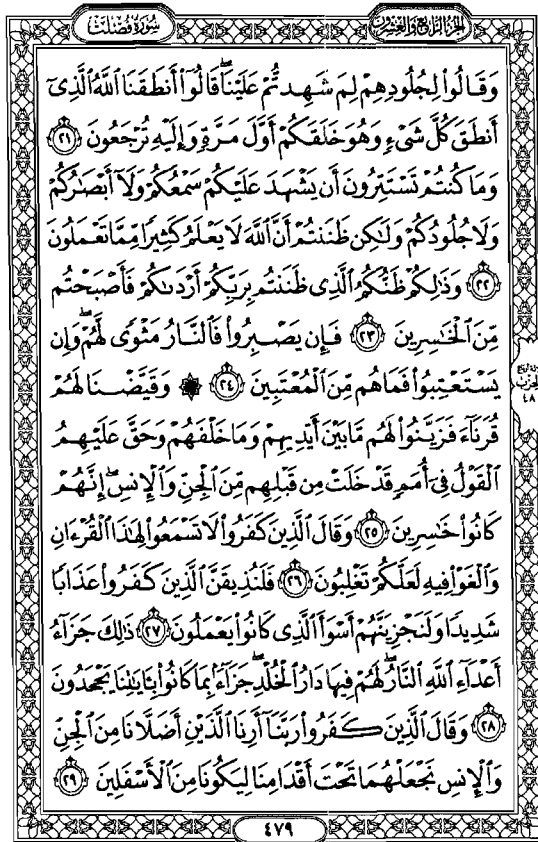 سُورَةُ فُصِّلَتْ
الجُزْءُ الرَّابِعُ وَالعِشْرُونَ
وَقَالُواْ لِجُلُودِهِمْ لِمَ شَهِدتُّمْ عَلَيْنَاۖ قَالُوٓاْ أَنطَقَنَا ٱللَّهُ ٱلَّذِىٓ
أَنطَقَ كُلَّ شَىْءٍ وَهُوَ خَلَقَكُمْ أَوَّلَ مَرَّةٍ وَإِلَيْهِ تُرْجَعُونَ ﴿٢١﴾
وَمَا كُنتُمْ تَسْتَتِرُونَ أَن يَشْهَدَ عَلَيْكُمْ سَمْعُكُمْ وَلَآ أَبْصَٰرُكُمْ
وَلَا جُلُودُكُمْ وَلَٰكِن ظَنَنتُمْ أَنَّ ٱللَّهَ لَا يَعْلَمُ كَثِيرًا مِّمَّا تَعْمَلُونَ
﴿٢٢﴾ وَذَٰلِكُمْ ظَنُّكُمُ ٱلَّذِى ظَنَنتُم بِرَبِّكُمْ أَرْدَىٰكُمْ فَأَصْبَحْتُم
مِّنَ ٱلْخَٰسِرِينَ ﴿٢٣﴾ فَإِن يَصْبِرُواْ فَٱلنَّارُ مَثْوًى لَّهُمْۖ وَإِن
يَسْتَعْتِبُواْ فَمَا هُم مِّنَ ٱلْمُعْتَبِينَ ﴿٢٤﴾ ۞ وَقَيَّضْنَا لَهُمْ
قُرَنَآءَ فَزَيَّنُواْ لَهُم مَّا بَيْنَ أَيْدِيهِمْ وَمَا خَلْفَهُمْ وَحَقَّ عَلَيْهِمُ
ٱلْقَوْلُ فِىٓ أُمَمٍ قَدْ خَلَتْ مِن قَبْلِهِم مِّنَ ٱلْجِنِّ وَٱلْإِنسِۖ إِنَّهُمْ
كَانُواْ خَٰسِرِينَ ﴿٢٥﴾ وَقَالَ ٱلَّذِينَ كَفَرُواْ لَا تَسْمَعُواْ لِهَٰذَا ٱلْقُرْءَانِ
وَٱلْغَوْاْ فِيهِ لَعَلَّكُمْ تَغْلِبُونَ ﴿٢٦﴾ فَلَنُذِيقَنَّ ٱلَّذِينَ كَفَرُواْ عَذَابًا
شَدِيدًا وَلَنَجْزِيَنَّهُمْ أَسْوَأَ ٱلَّذِى كَانُواْ يَعْمَلُونَ ﴿٢٧﴾ ذَٰلِكَ جَزَآءُ
أَعْدَآءِ ٱللَّهِ ٱلنَّارُۖ لَهُمْ فِيهَا دَارُ ٱلْخُلْدِۖ جَزَآءَۢ بِمَا كَانُواْ بِـَٔايَٰتِنَا يَجْحَدُونَ
﴿٢٨﴾ وَقَالَ ٱلَّذِينَ كَفَرُواْ رَبَّنَآ أَرِنَا ٱلَّذَيْنِ أَضَلَّانَا مِنَ ٱلْجِنِّ
وَٱلْإِنسِ نَجْعَلْهُمَا تَحْتَ أَقْدَامِنَا لِيَكُونَا مِنَ ٱلْأَسْفَلِينَ ﴿٢٩﴾
الحِزْب
٤٨
٤٧٩